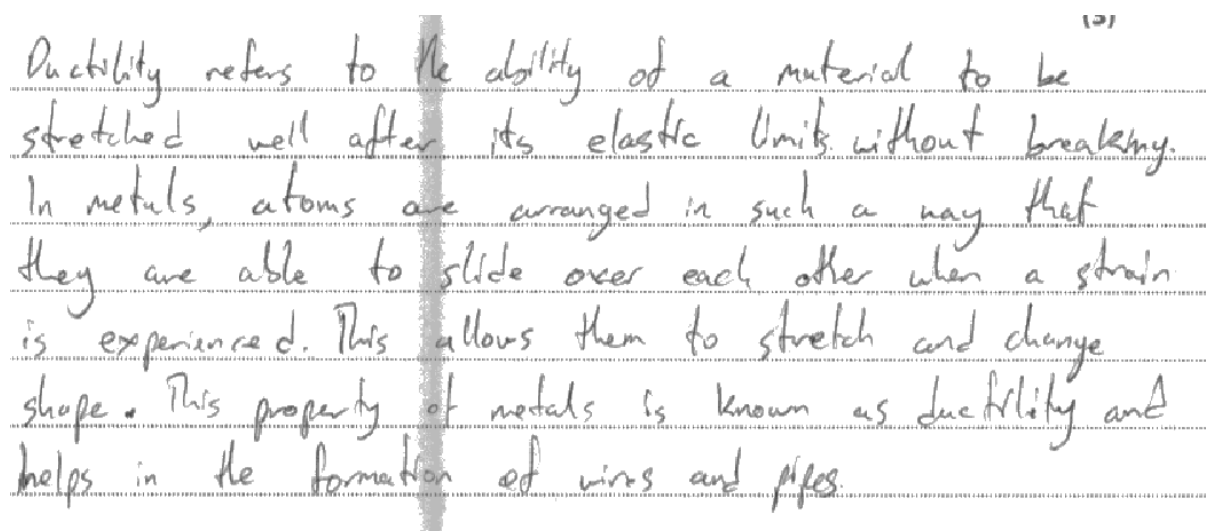 (3)
Ductility refers to the ability of a material to be
stretched well after its elastic limits without breaking.
In metals, atoms are arranged in such a way that
they are able to slide over each other when a strain
is experienced. This allows them to stretch and change
shape. This property of metals is known as ductility and
helps in the formation of wires and pipes.